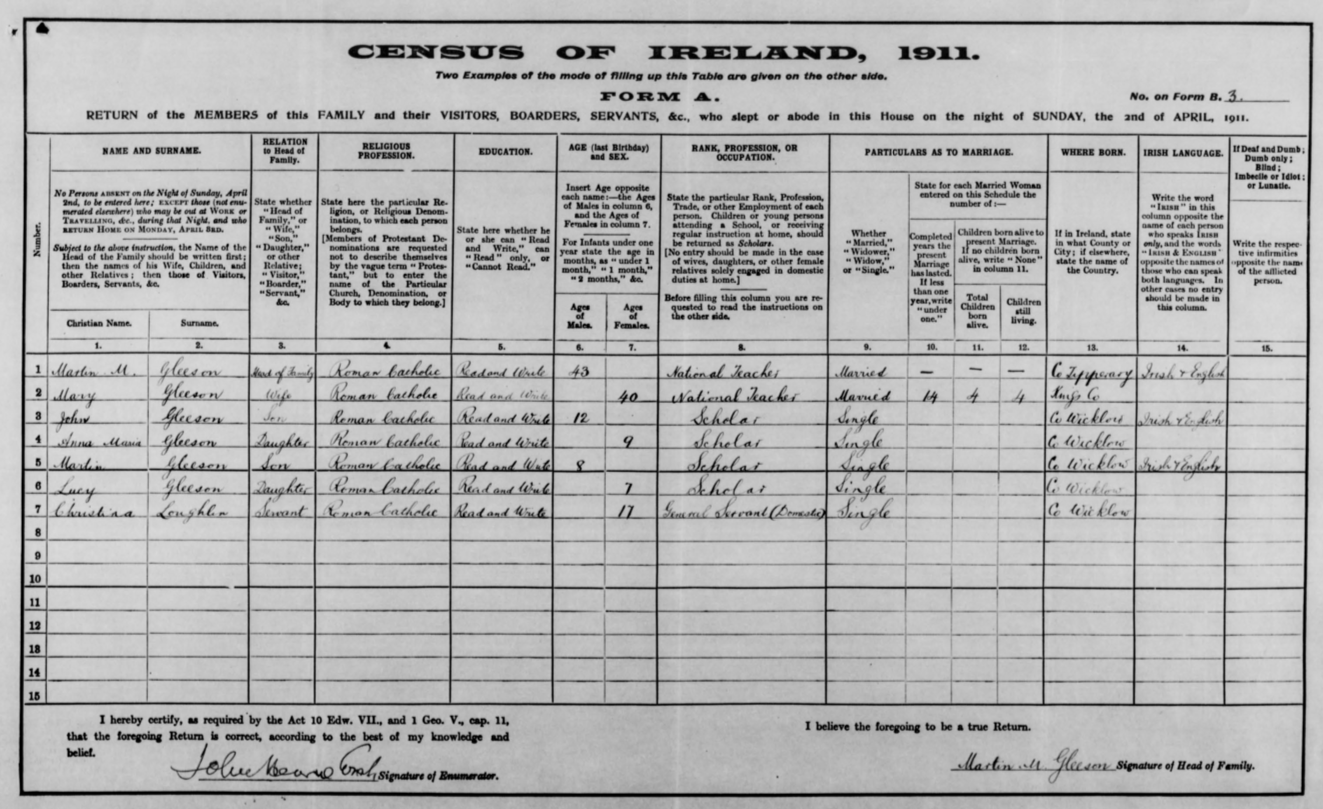 CENSUS OF IRELAND, 1911.
Two Examples of the mode of filling up this Table are given on the other side.
FORM A.
No. on Form B. 3.
RETURN of the MEMBERS of this FAMILY and their VISITORS, BOARDERS, SERVANTS, &c., who slept or abode in this House on the night of SUNDAY, the 2nd of APRIL, 1911.
Number.
NAME AND SURNAME.
No Persons ABSENT on the Night of Sunday, April
2nd, to be entered here; EXCEPT those (not enu-
merated elsewhere) who may be out at WORK or
TRAVELLING, &c., during that Night, and who
RETURN HOME ON MONDAY, APRIL 3RD.
Subject to the above instruction, the Name of the
Head of the Family should be written first;
then the names of his Wife, Children, and
other Relatives; then those of Visitors,
Boarders, Servants, &c.
Christian Name.
Surname.
RELATION
to Head of
Family.
State whether
"Head of
Family," or
"Wife,"
"Son,"
"Daughter,"
or other
Relative;
"Visitor,"
"Boarder,"
"Servant,"
&c.
RELIGIOUS
PROFESSION.
State here the particular Re-
ligion, or Religious Denom-
ination, to which each person
belongs.
[Members of Protestant De-
nominations are requested
not to describe themselves
by the vague term "Protes-
tant," but to enter the
name of the Particular
Church, Denomination, or
Body to which they belong.]
EDUCATION.
State here whether he
or she can "Read
and Write," can
"Read" only, or
"Cannot Read."
AGE (last Birthday)
and SEX.
Insert Age opposite
each name:—the Ages
of Males in column 6,
and the Ages of
Females in column 7.
For Infants under one
year state the age in
months, as "under 1
month," "1 month,"
"2 months," &c.
Ages
of
Males.
Ages
of
Females.
RANK, PROFESSION, OR
OCCUPATION.
State the particular Rank, Profession,
Trade, or other Employment of each
person. Children or young persons
attending a School, or receiving
regular instruction at home, should
be returned as Scholars.
[No entry should be made in the case
of wives, daughters, or other female
relatives solely engaged in domestic
duties at home.]
Before filling this column you are re-
quested to read the instructions on
the other side.
PARTICULARS AS TO MARRIAGE.
Whether
"Married,"
"Widower,"
"Widow,"
or "Single."
State for each Married Woman
entered on this Schedule the
number of:—
Completed
years the
present
Marriage
has lasted.
If less
than one
year, write
"under
one."
Children born alive to
present Marriage.
If no children born
alive, write "None"
in column 11.
Total
Children
born
alive.
Children
still
living.
WHERE BORN.
If in Ireland, state
in what County or
City; if elsewhere,
state the name of
the Country.
IRISH LANGUAGE.
Write the word
"IRISH" in this
column opposite the
name of each person
who speaks IRISH
only, and the words
"IRISH & ENGLISH"
opposite the names of
those who can speak
both languages. In
other cases no entry
should be made in
this column.
If Deaf and Dumb;
Dumb only;
Blind;
Imbecile or Idiot;
or Lunatic.
Write the respec-
tive infirmities
opposite the name
of the afflicted
person.
1. 2. 3. 4. 5. 6. 7. 8. 9. 10. 11. 12. 13. 14. 15.
1 Martin M. Gleeson Head of Family Roman Catholic Read and Write 43 National Teacher Married — — — Co Tipperary Irish & English
2 Mary Gleeson Wife Roman Catholic Read and Write 40 National Teacher Married 14 4 4 Kings Co
3 John Gleeson Son Roman Catholic Read and Write 12 Scholar Single Co Wicklow Irish & English
4 Anna Maria Gleeson Daughter Roman Catholic Read and Write 9 Scholar Single Co Wicklow
5 Martin Gleeson Son Roman Catholic Read and Write 8 Scholar Single Co Wicklow Irish & English
6 Lucy Gleeson Daughter Roman Catholic Read and Write 7 Scholar Single Co Wicklow
7 Christina Loughlin Servant Roman Catholic Read and Write 17 General Servant (Domestic) Single Co Wicklow
8
9
10
11
12
13
14
15
I hereby certify, as required by the Act 10 Edw. VII., and 1 Geo. V., cap. 11,
that the foregoing Return is correct, according to the best of my knowledge and
belief.
John Signature of Enumerator.
I believe the foregoing to be a true Return.
Martin M. Gleeson Signature of Head of Family.